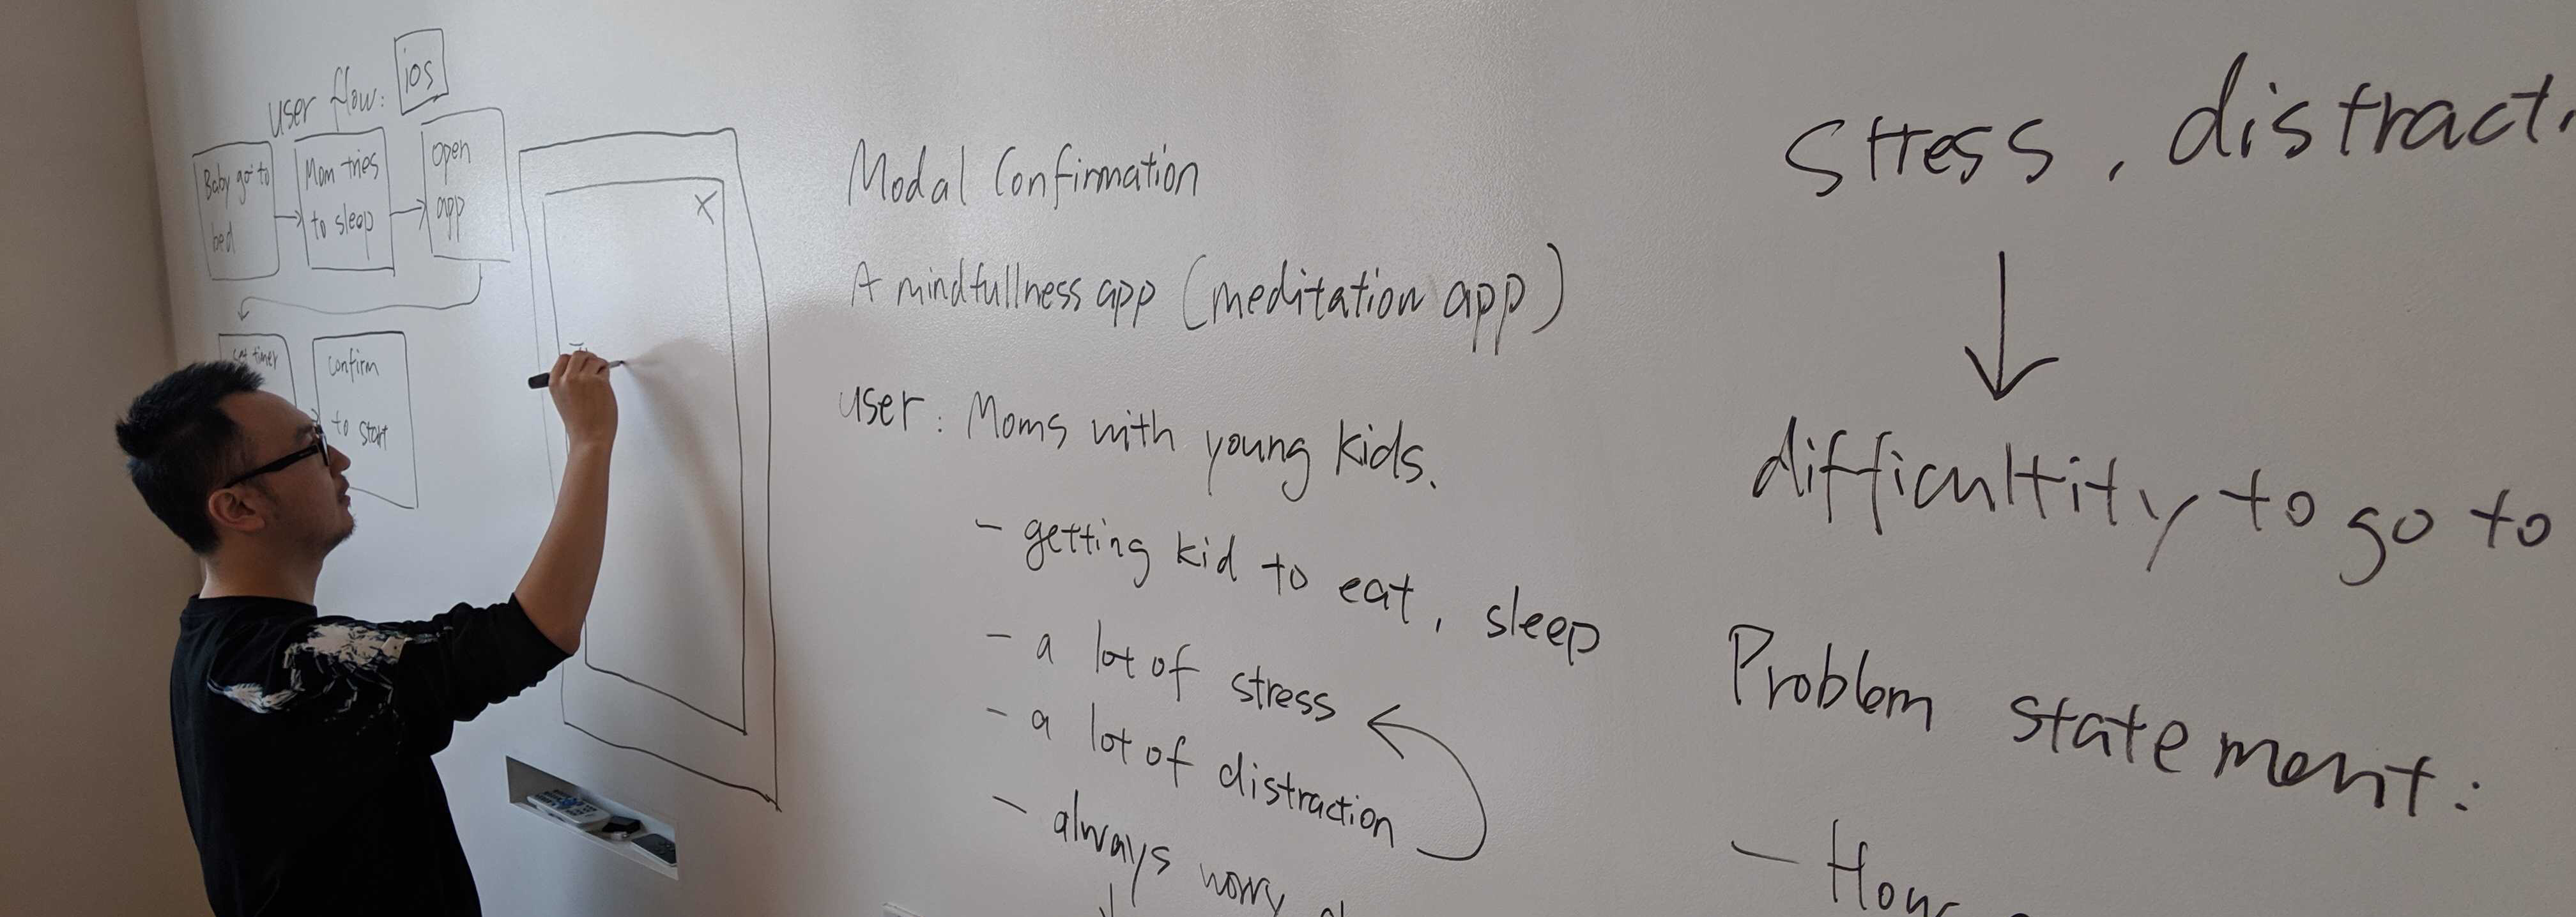 user flow: ios
Baby go to bed
Mom tries to sleep
open app
set timer
confirm to start
X
Modal Confirmation
A mindfullness app (meditation app)
user: Moms with young kids.
- getting kid to eat, sleep
- a lot of stress
- a lot of distraction
- always worry
stress, distract
difficultity to go to
Problem statement:
- How